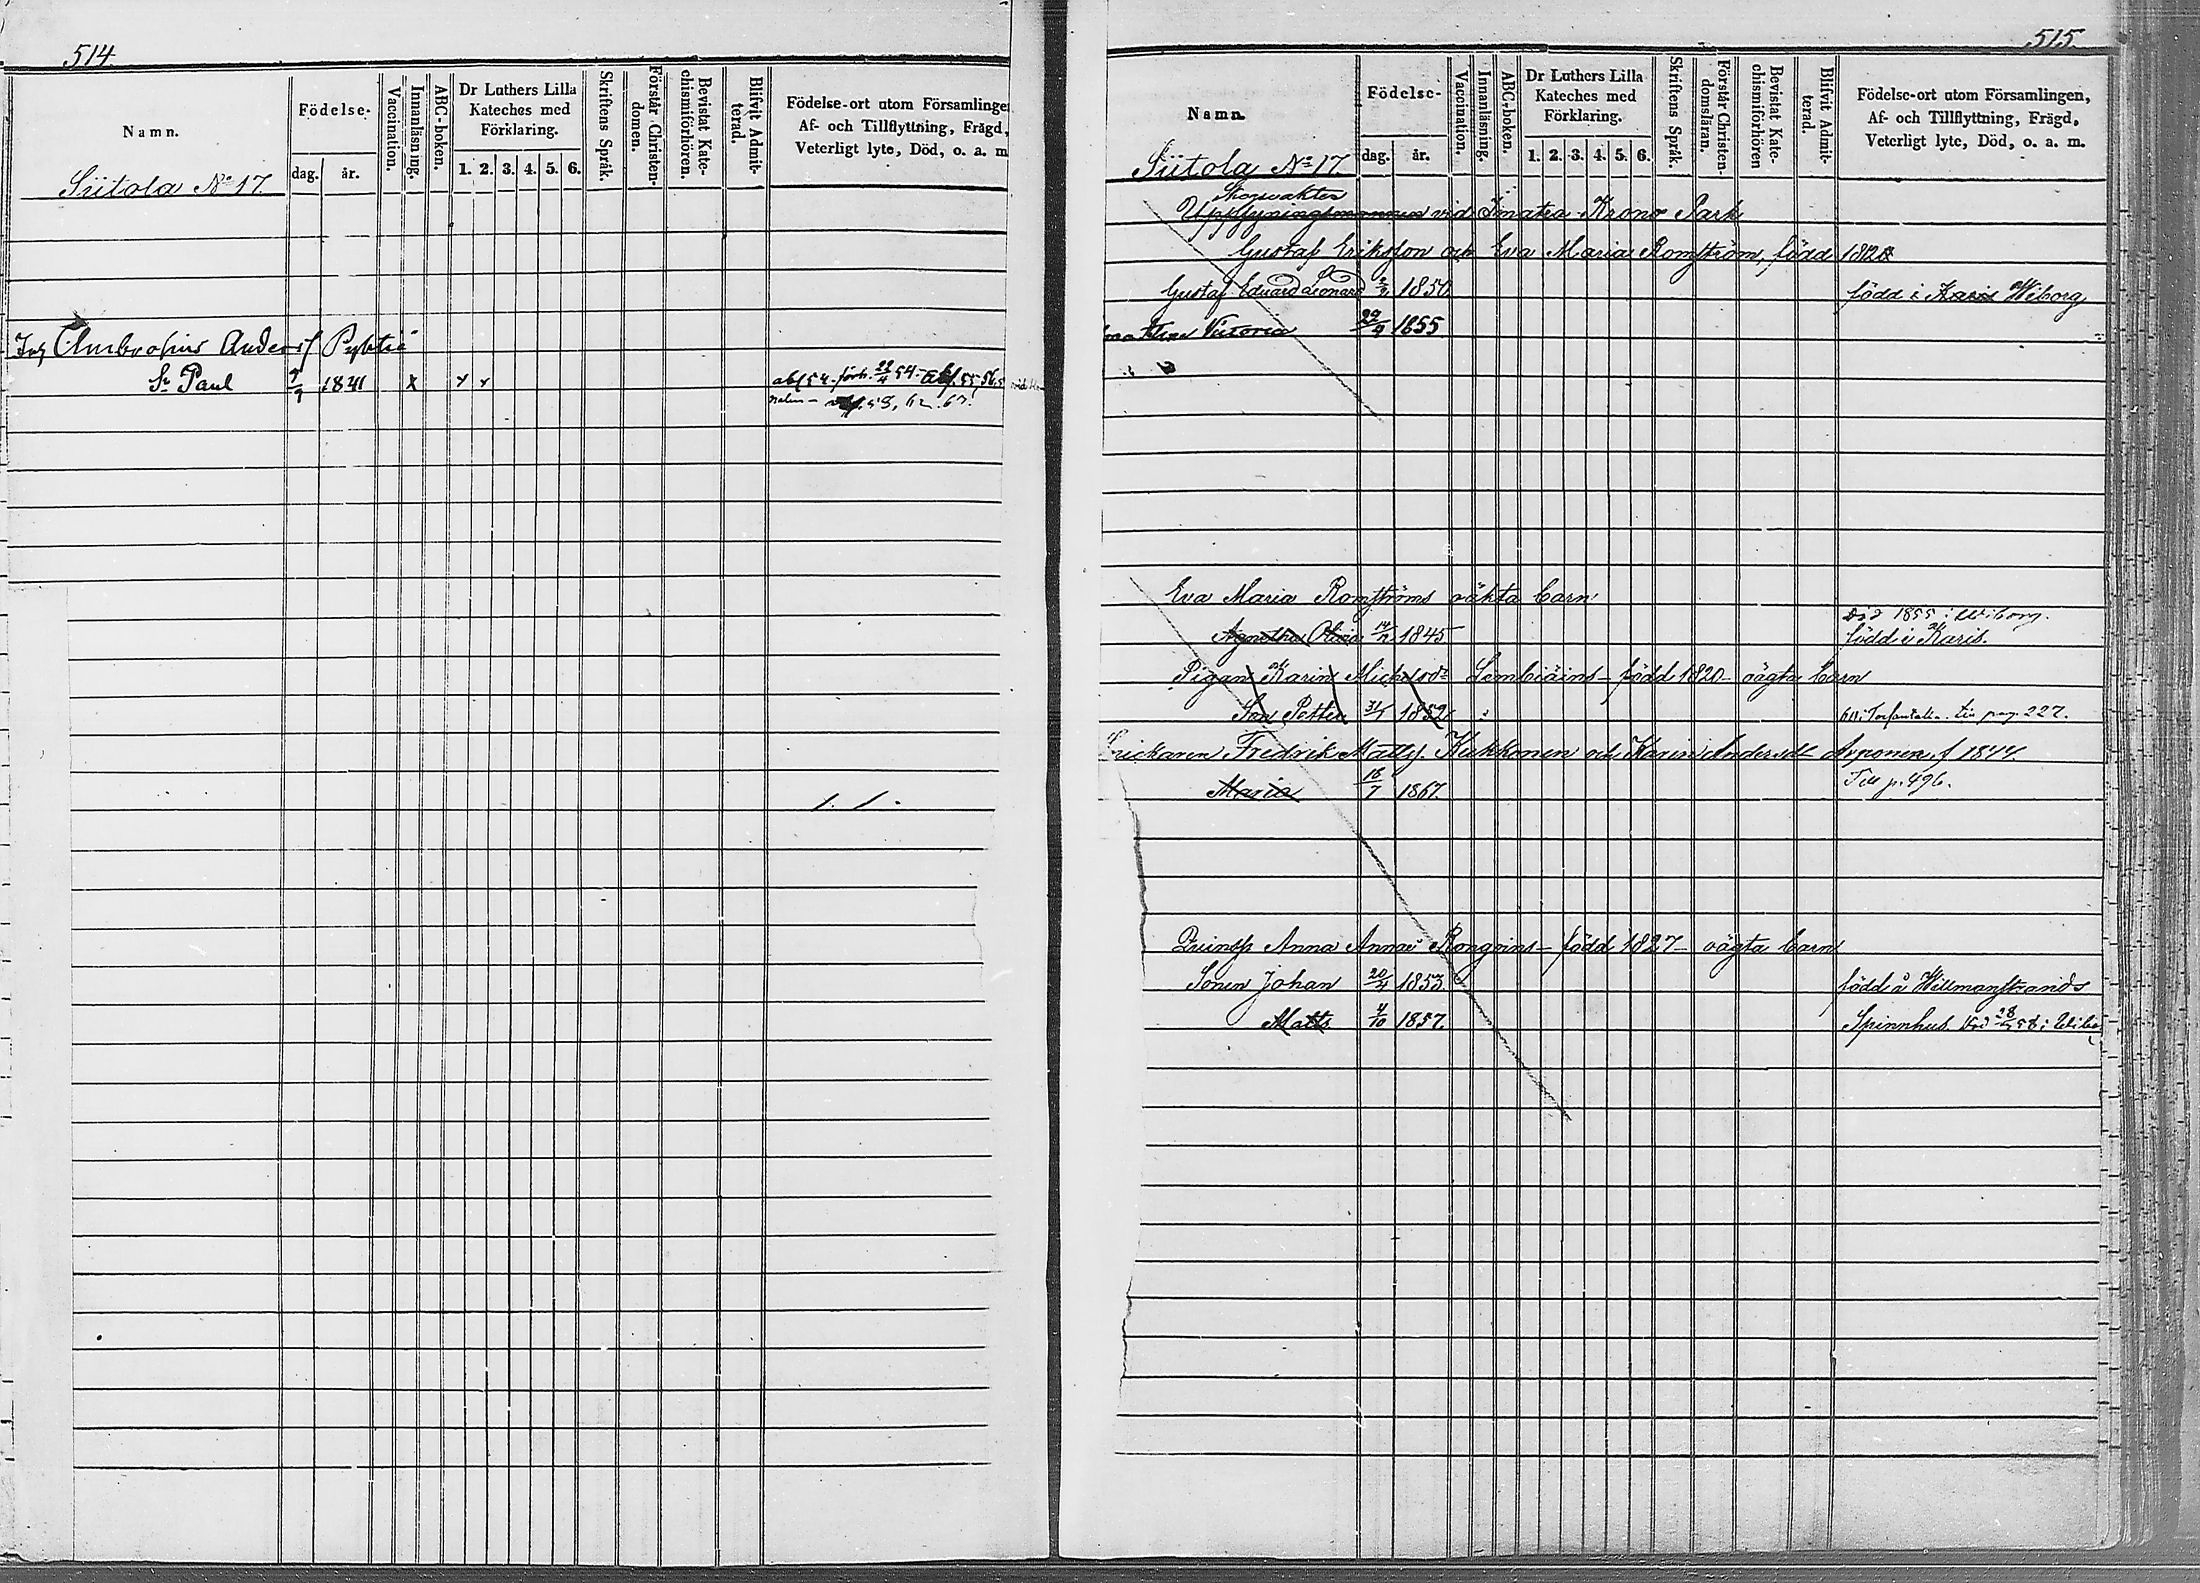 514
Namn.
Födelse-
dag.
år.
Vaccination.
Innanläsning.
ABC-boken.
Dr Luthers Lilla
Kateches med
Förklaring.
1. 2. 3. 4. 5. 6.
Skriftens Språk.
Förstår Christen-
domen.
Bevistat Kate-
chismiförhören.
Blifvit Admit-
terad.
Födelse-ort utom Församlinge
Af- och Tillflyttning, Frägd,
Veterligt lyte, Död, o. a. m
Siitola No 17
Ambrosius Anders Pyktiä
Sr Paul 1841 x x x
58, 62. 67.
515
Namn.
Födelse-
dag.
år.
Vaccination.
Innanläsning.
ABC-boken.
Dr Luthers Lilla
Kateches med
Förklaring.
1. 2. 3. 4. 5. 6.
Skriftens Språk.
Förstår Christen-
domsläran.
Bevistat Kate-
chismiförhören
Blifvit Admit-
terad.
Födelse-ort utom Församlingen,
Af- och Tillflyttning, Frägd,
Veterligt lyte, Död, o. a. m.
Siitola No 17.
Skogvakter
Uppsyningsmannen vid Imatra Krono Park
Gustaf Eriksson och Eva Maria Romström, född 1820
Gustaf Eduard Leonard 1850. född i Karis Wiborg
Victoria 29/9 1855.
Eva Maria Romströms oäkta barn
död 1855 i Wiborg.
Agnetha Olivia 1845 född i Karis.
Pigan Karin Michelsdr född 1820 oägta barn
Son Petter 31/1 1852 pag. 227.
Fredrik Matts. Kukkonen och Karin Andersdr Arponen f 1844.
Maria 18/7 1867. Till p. 496.
Anna född 1827 oägta barn
Sonen Johan 20/4 1853. född å Willmanstrands
Matts 4/10 1857. Spinnhus.